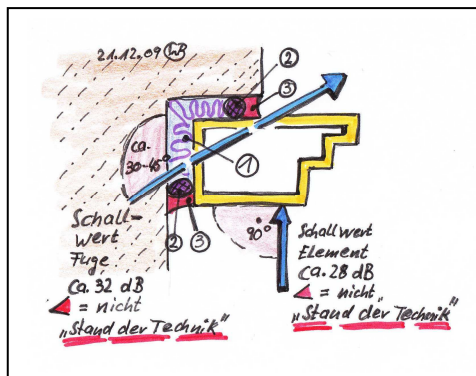 21.12.09 HB
②
③
ca.
30-45°
①
② ③
90°
Schall-
wert
Fuge
ca. 32 dB
= nicht
"Stand der Technik"
Schallwert
Element
ca. 28 dB
= nicht
"Stand der Technik"